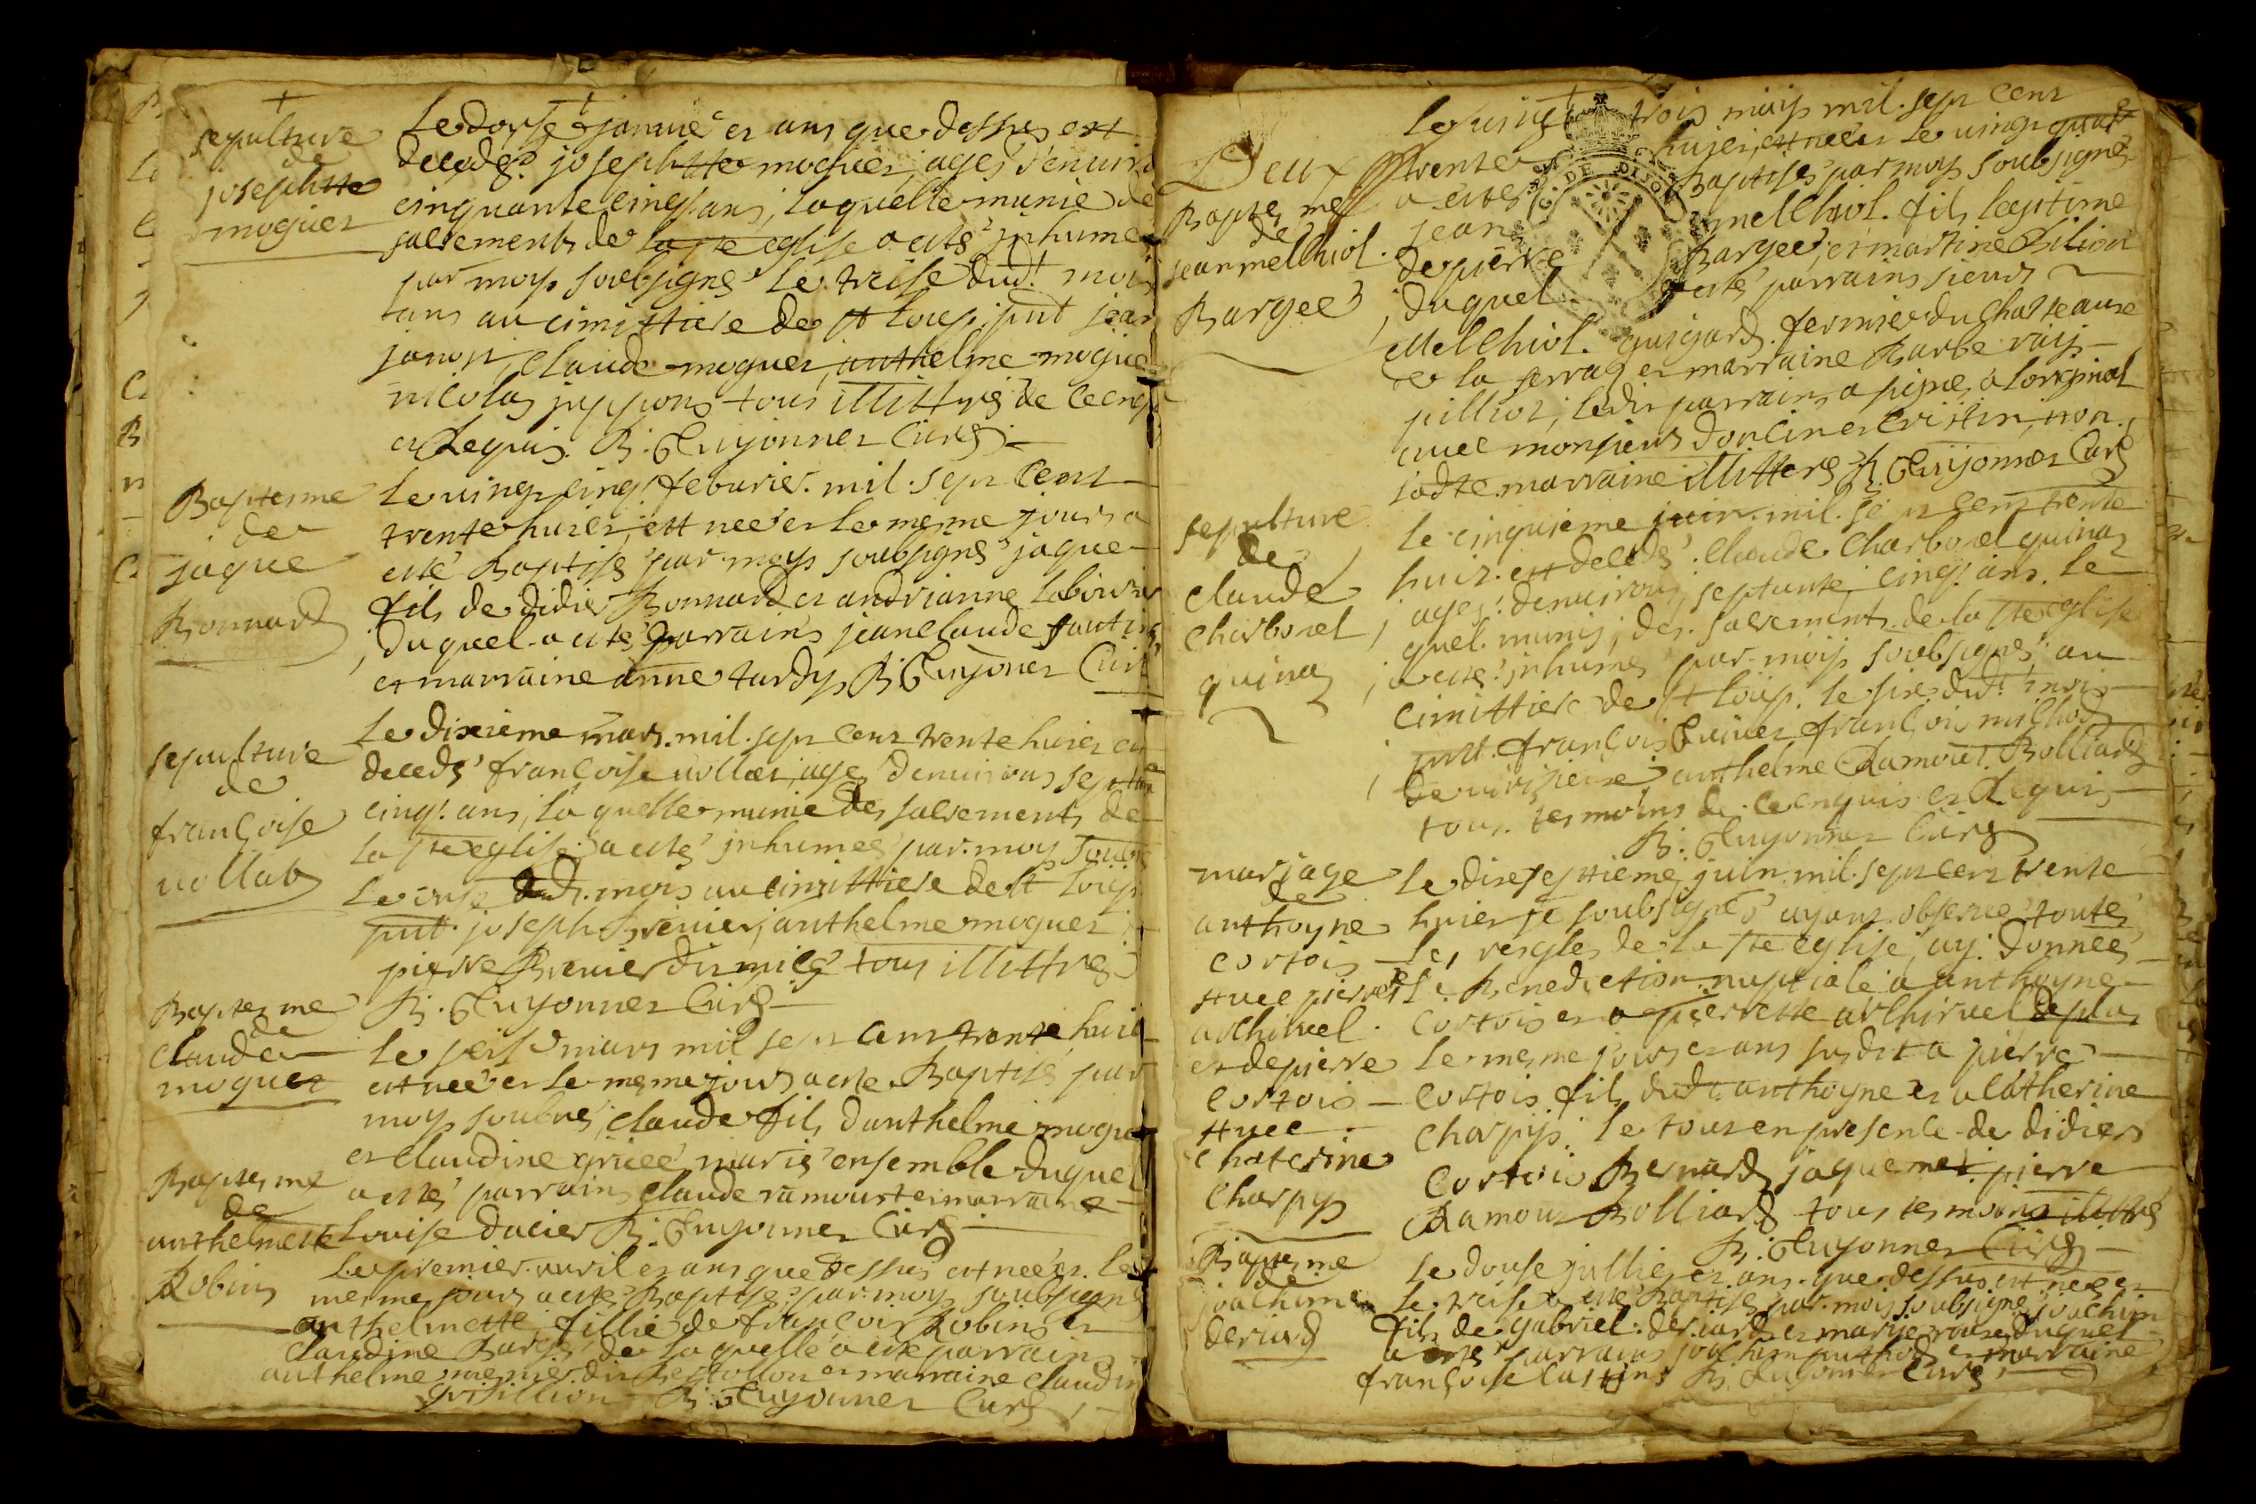 sepulture
de
josephtte
moguet
Le douse janvié et ans que dessus est
decedé josephtte moguet, agée d'enuiro
cinquante cinq ans, laquelle munie de
sacrements de la ste eglise a esté jnhumée
par moy soubsigné le treise dud.t mois
ans au cimittiere de st loup pnt jean
janon, claude moguet, anthelme moguet
nicolas juppons tous illittres de ce enq
et Requis. B. Guyonnet Curé
Baptesme
de
jaque
Bonnard
Le vingt cinq feburier mil sept cent
trente huict, est neé et le mesme jour a
esté Baptisé par moy soubsigné jaque
fils de didier Bonnard et andrianne labourier
duquel a esté parrains jean claude fautin
et marraine anne tardy B. Guyonet Curé
sepulture
de
françoise
vollat
Le dixieme mars mil sept cent trente huict est
decedé françoise vollat, agé d'enuirons septante
cinq ans, laquelle munie des sacrements de
la ste eglise a esté jnhumée par moy soubs
le onse dud. mois au cimittiere de st loup
pnt joseph Breuier, anthelme moguet
pierre Breuier dit mice tous illittres
B. Guyonnet Curé
Baptesme
de
claude
moguet
Le seise mars mil sept cent trente huict
est neé et le mesme jour a esté Baptisé par
moy soubné, claude fils danthelme moguet
et claudine griceé mariés ensemble duquel
a esté parrain claude ramouste marraine
Louise dacier B. Guyonnet Curé
Baptesme
de
anthelmette
Robin
Le premier auril et ans que dessus est neé et le
mesme jour a esté Baptisé par moy soubsigné
anthelmette fillie de françois Robin et
claudine Bargé de laquelle a esté parrain
anthelme menier dit Restollon et marraine claudin
grisillion B. Guyonnet Curé
Deux
Baptesmes
de
jean melchiol
Bargeé
Le vingt trois may mil sept cent
trente huict, est neé et le vingt quatre
a esté Baptisé par moy soubsigné
jean melchiol fils legitime
de pierre Bargeé, et martine pilion
duquel a esté parrains sieur
Melchiol guigard fermier du chatteaux
de la serraz et marraine Barbe ray
pilliot, ledit parrain a signé a loriginal
auec monsieur doncin et cristin, non
ladte marraine illittere B. Guyonnet Curé
sepulture
de
claude
charbonel
quinaz
Le cinquieme juin mil sept cent trente
huict est decedé claude charbonel quinaz
agé denuirons septante cinq ans le
quel munis des sacrements de la ste eglise
a esté jnhumé par moy soubsigné au
cimittiere de st loup le sixe dud.t mois
pnt françois Guinet françois milhod
anthelme Ramout Bolliard
tous tesmoins de ce enquis et Requis
B. Guyonnet Curé
marjage
de
anthoyne
cortois
auec pierrette
arthiruel
et de pierre
cortois
auec
chaterine
charpy
Le dixseptieme juin mil sept cent trente
huict je soubsigné ayant obserué toutes
les reigles de la ste eglise, ay donneé
la Benediction nuptiale a anthoyne
Cortois et a pierrette arthiruel de plus
le mesme jour et ans susdit a pierre
Cortois fils dudt anthoyne et a Catherine
Charpy. Le tout en presence de didier
Cortois Bernard jaquemet pierre
Ramout Bolliard tous tesmoins illittres
B. Guyonnet Curé
Baptesme
joachim
deriard
Le douse jullies et ans que dessus est neé et
le treise a esté Baptisé par moy soubsigné joachim
fils de gabriel deriard et marie rouse duquel
a esté parrains joachim puthod et marraine
françoise lastins B. Guyonnet Curé
G. DE DIJON